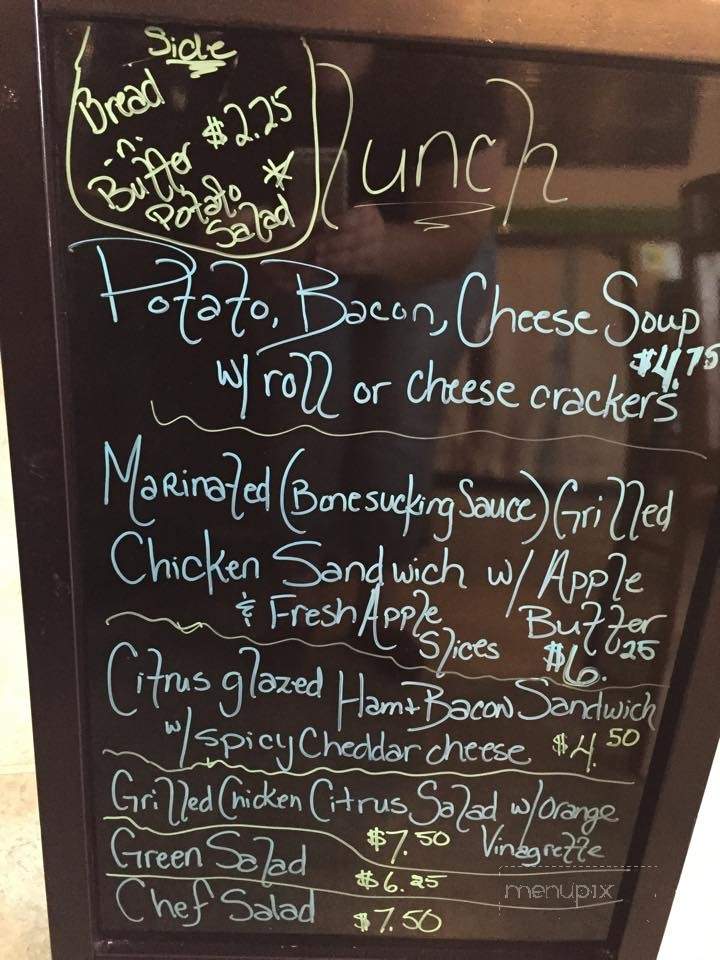 Side
Bread
.n.
Butter $2.25
Potato *
Salad
Lunch
Potato, Bacon, Cheese Soup
$4.75
w/ roll or cheese crackers
Marinated (Bonesucking Sauce) Grilled
Chicken Sandwich w/ Apple
& Fresh Apple Butter
Slices $6.25
Citrus glazed Ham + Bacon Sandwich
w/ spicy Cheddar cheese $4.50
Grilled Chicken Citrus Salad w/ Orange
$7.50 Vinagrette
Green Salad
$6.25
Chef Salad $7.50
menupix